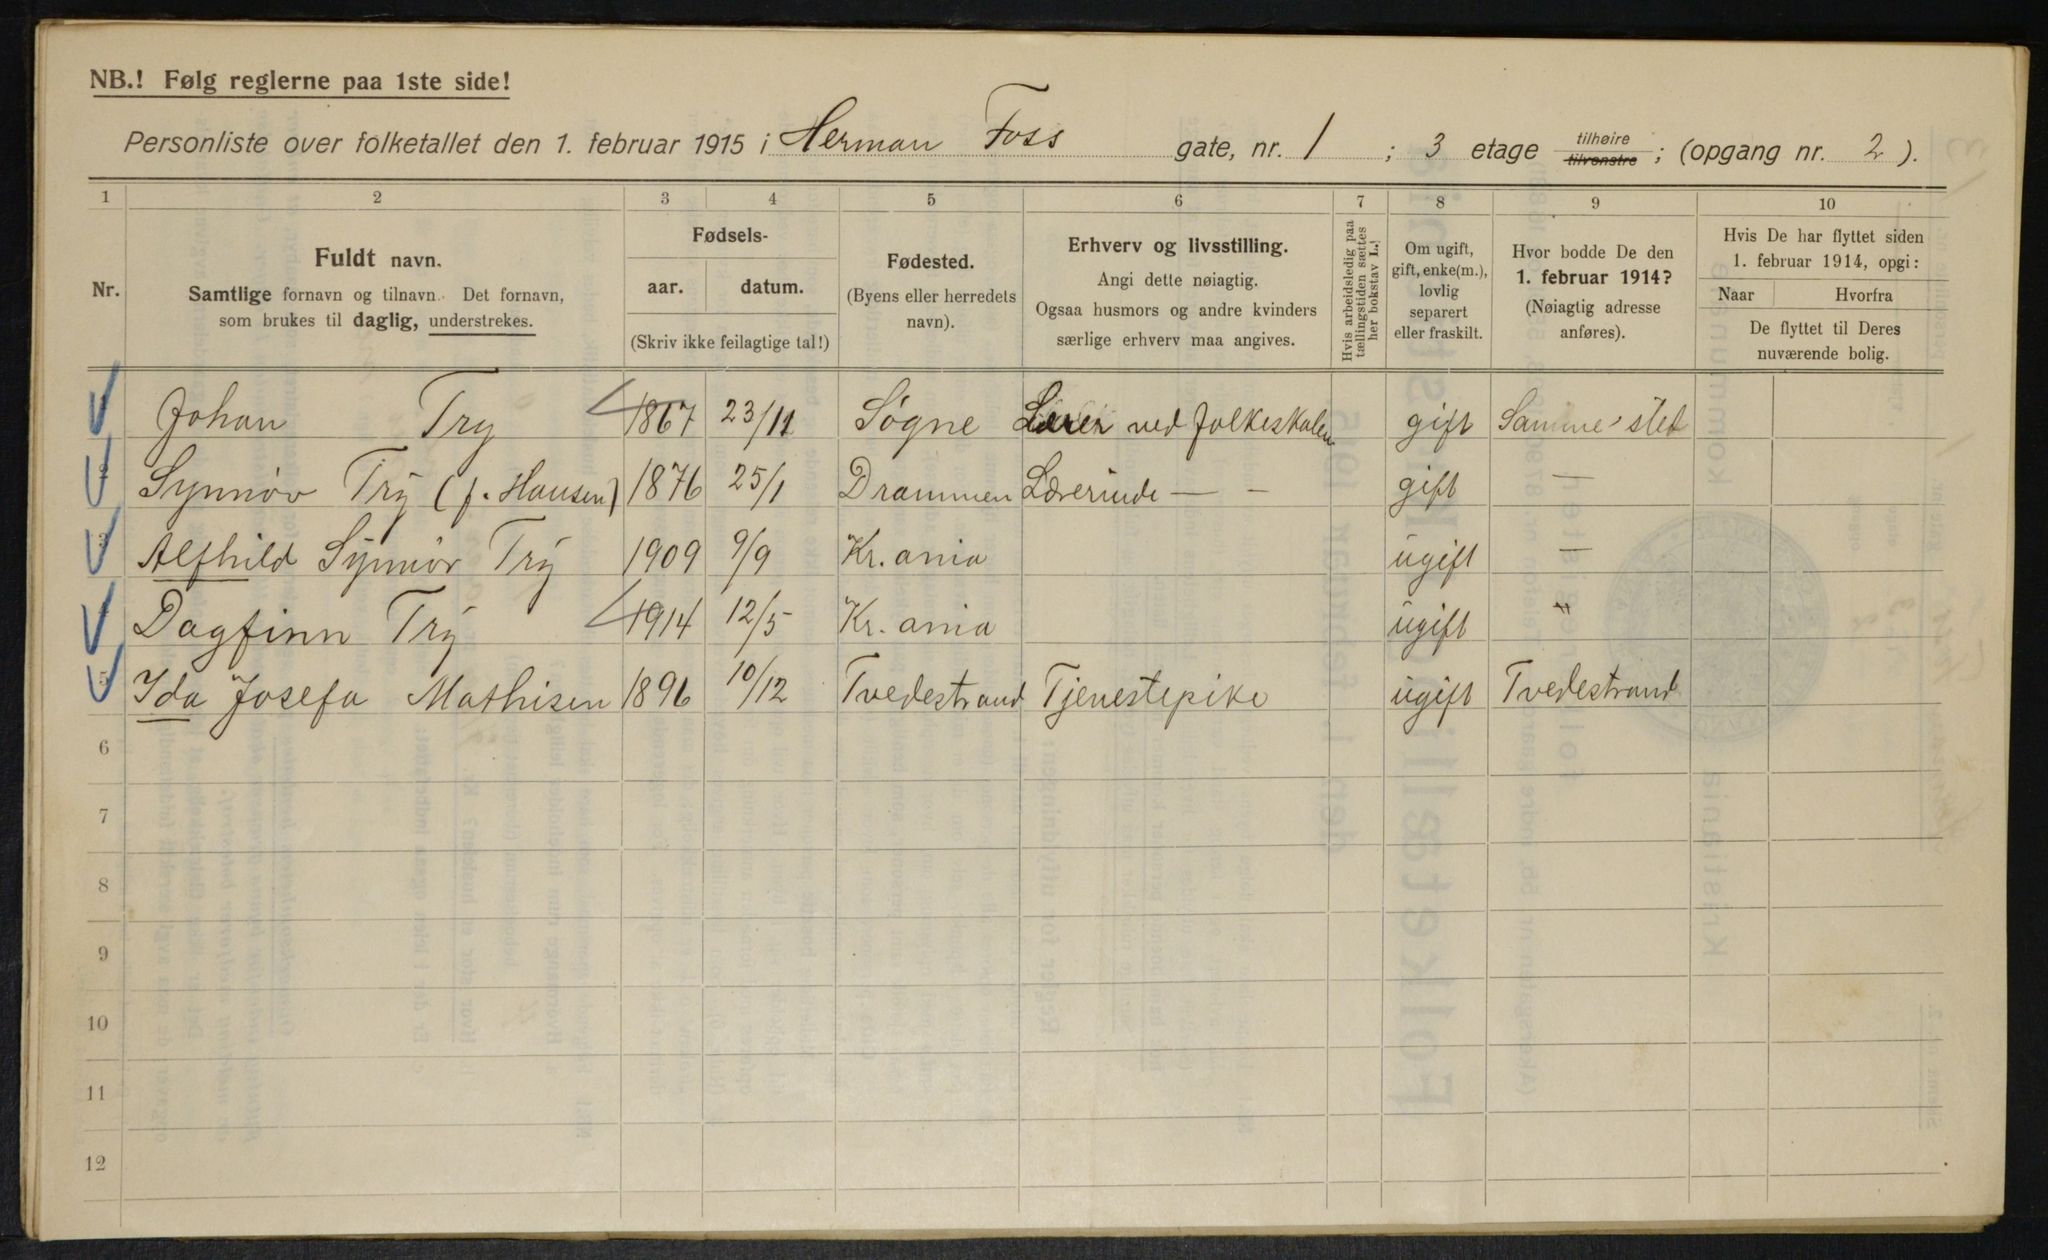 NB.! Følg reglerne paa 1ste side!
Personliste over folketallet den 1. februar 1915 i Herman Foss gate, nr. 1 ; 3 etage tilhøire tilvenstre ; (opgang nr. 2 ).
1 2 3 4 5 6 7 8 9 10
Nr.
Fuldt navn.
Samtlige fornavn og tilnavn. Det fornavn,
som brukes til daglig, understrekes.
Fødsels-
aar. datum.
(Skriv ikke feilagtige tal!)
Fødested.
(Byens eller herredets
navn).
Erhverv og livsstilling.
Angi dette nøiagtig.
Ogsaa husmors og andre kvinders
særlige erhverv maa angives.
Hvis arbeidsledig paa
tællingstiden sættes
her bokstav L.!
Om ugift,
gift, enke(m.),
lovlig
separert
eller fraskilt.
Hvor bodde De den
1. februar 1914?
(Nøiagtig adresse
anføres).
Hvis De har flyttet siden
1. februar 1914, opgi:
Naar Hvorfra
De flyttet til Deres
nuværende bolig.
Johan Try 1867 23/11 Søgne Lærer ved folkeskolen gift Samme sted
2 Synnøv Try (f. Hansen) 1876 25/1 Drammen Lærerinde — - gift —
3 Alfhild Synnøv Try 1909 9/9 Kr. ania ugift —
4 Dagfinn Try 1914 12/5 Kr. ania ugift
5 Ida Josefa Mathisen 1896 10/12 Tvedestrand Tjenestepike ugift Tvedestrand
6
7
8
9
10
11
12